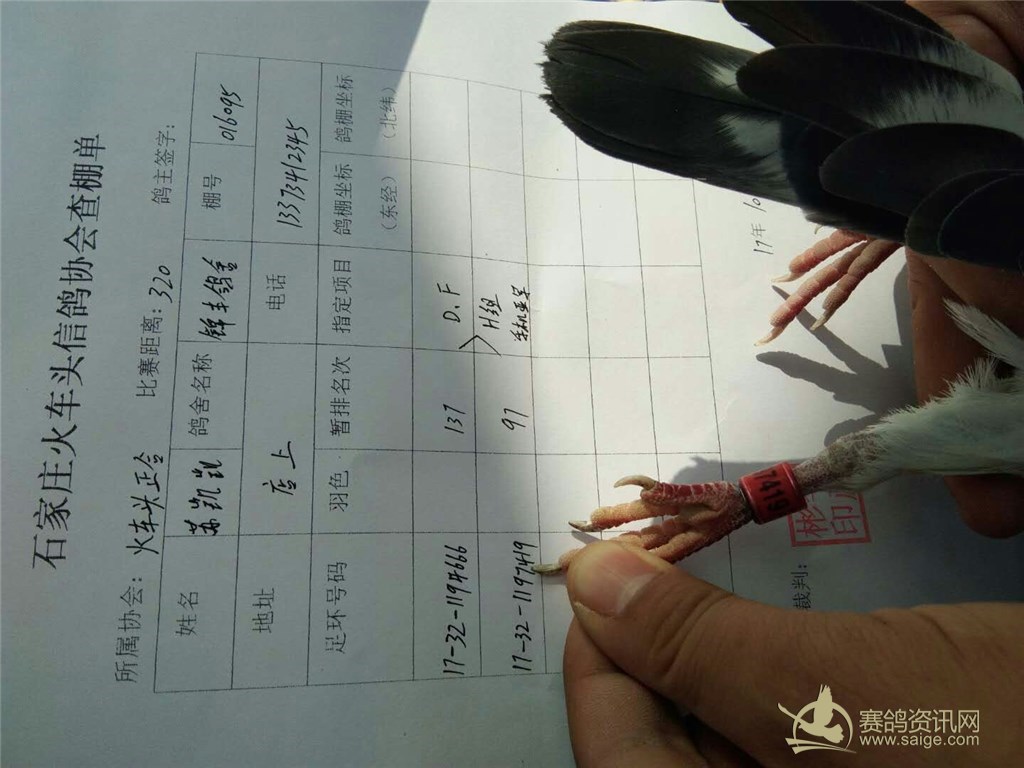 石家庄火车头信鸽协会查棚单
所属协会：火车头正合 比赛距离：320 鸽主签字：
姓名 苏凯凯 鸽舍名称 棚号 016095
地址 店上 电话 13373412345
足环号码 羽色 暂排名次 指定项目 鸽棚坐标（东经） 鸽棚坐标（北纬）
17-32-1194666 137 D.F
17-32-1197419 97 H组
17年 10
裁判：
彬印
7419
赛鸽资讯网
www.saige.com